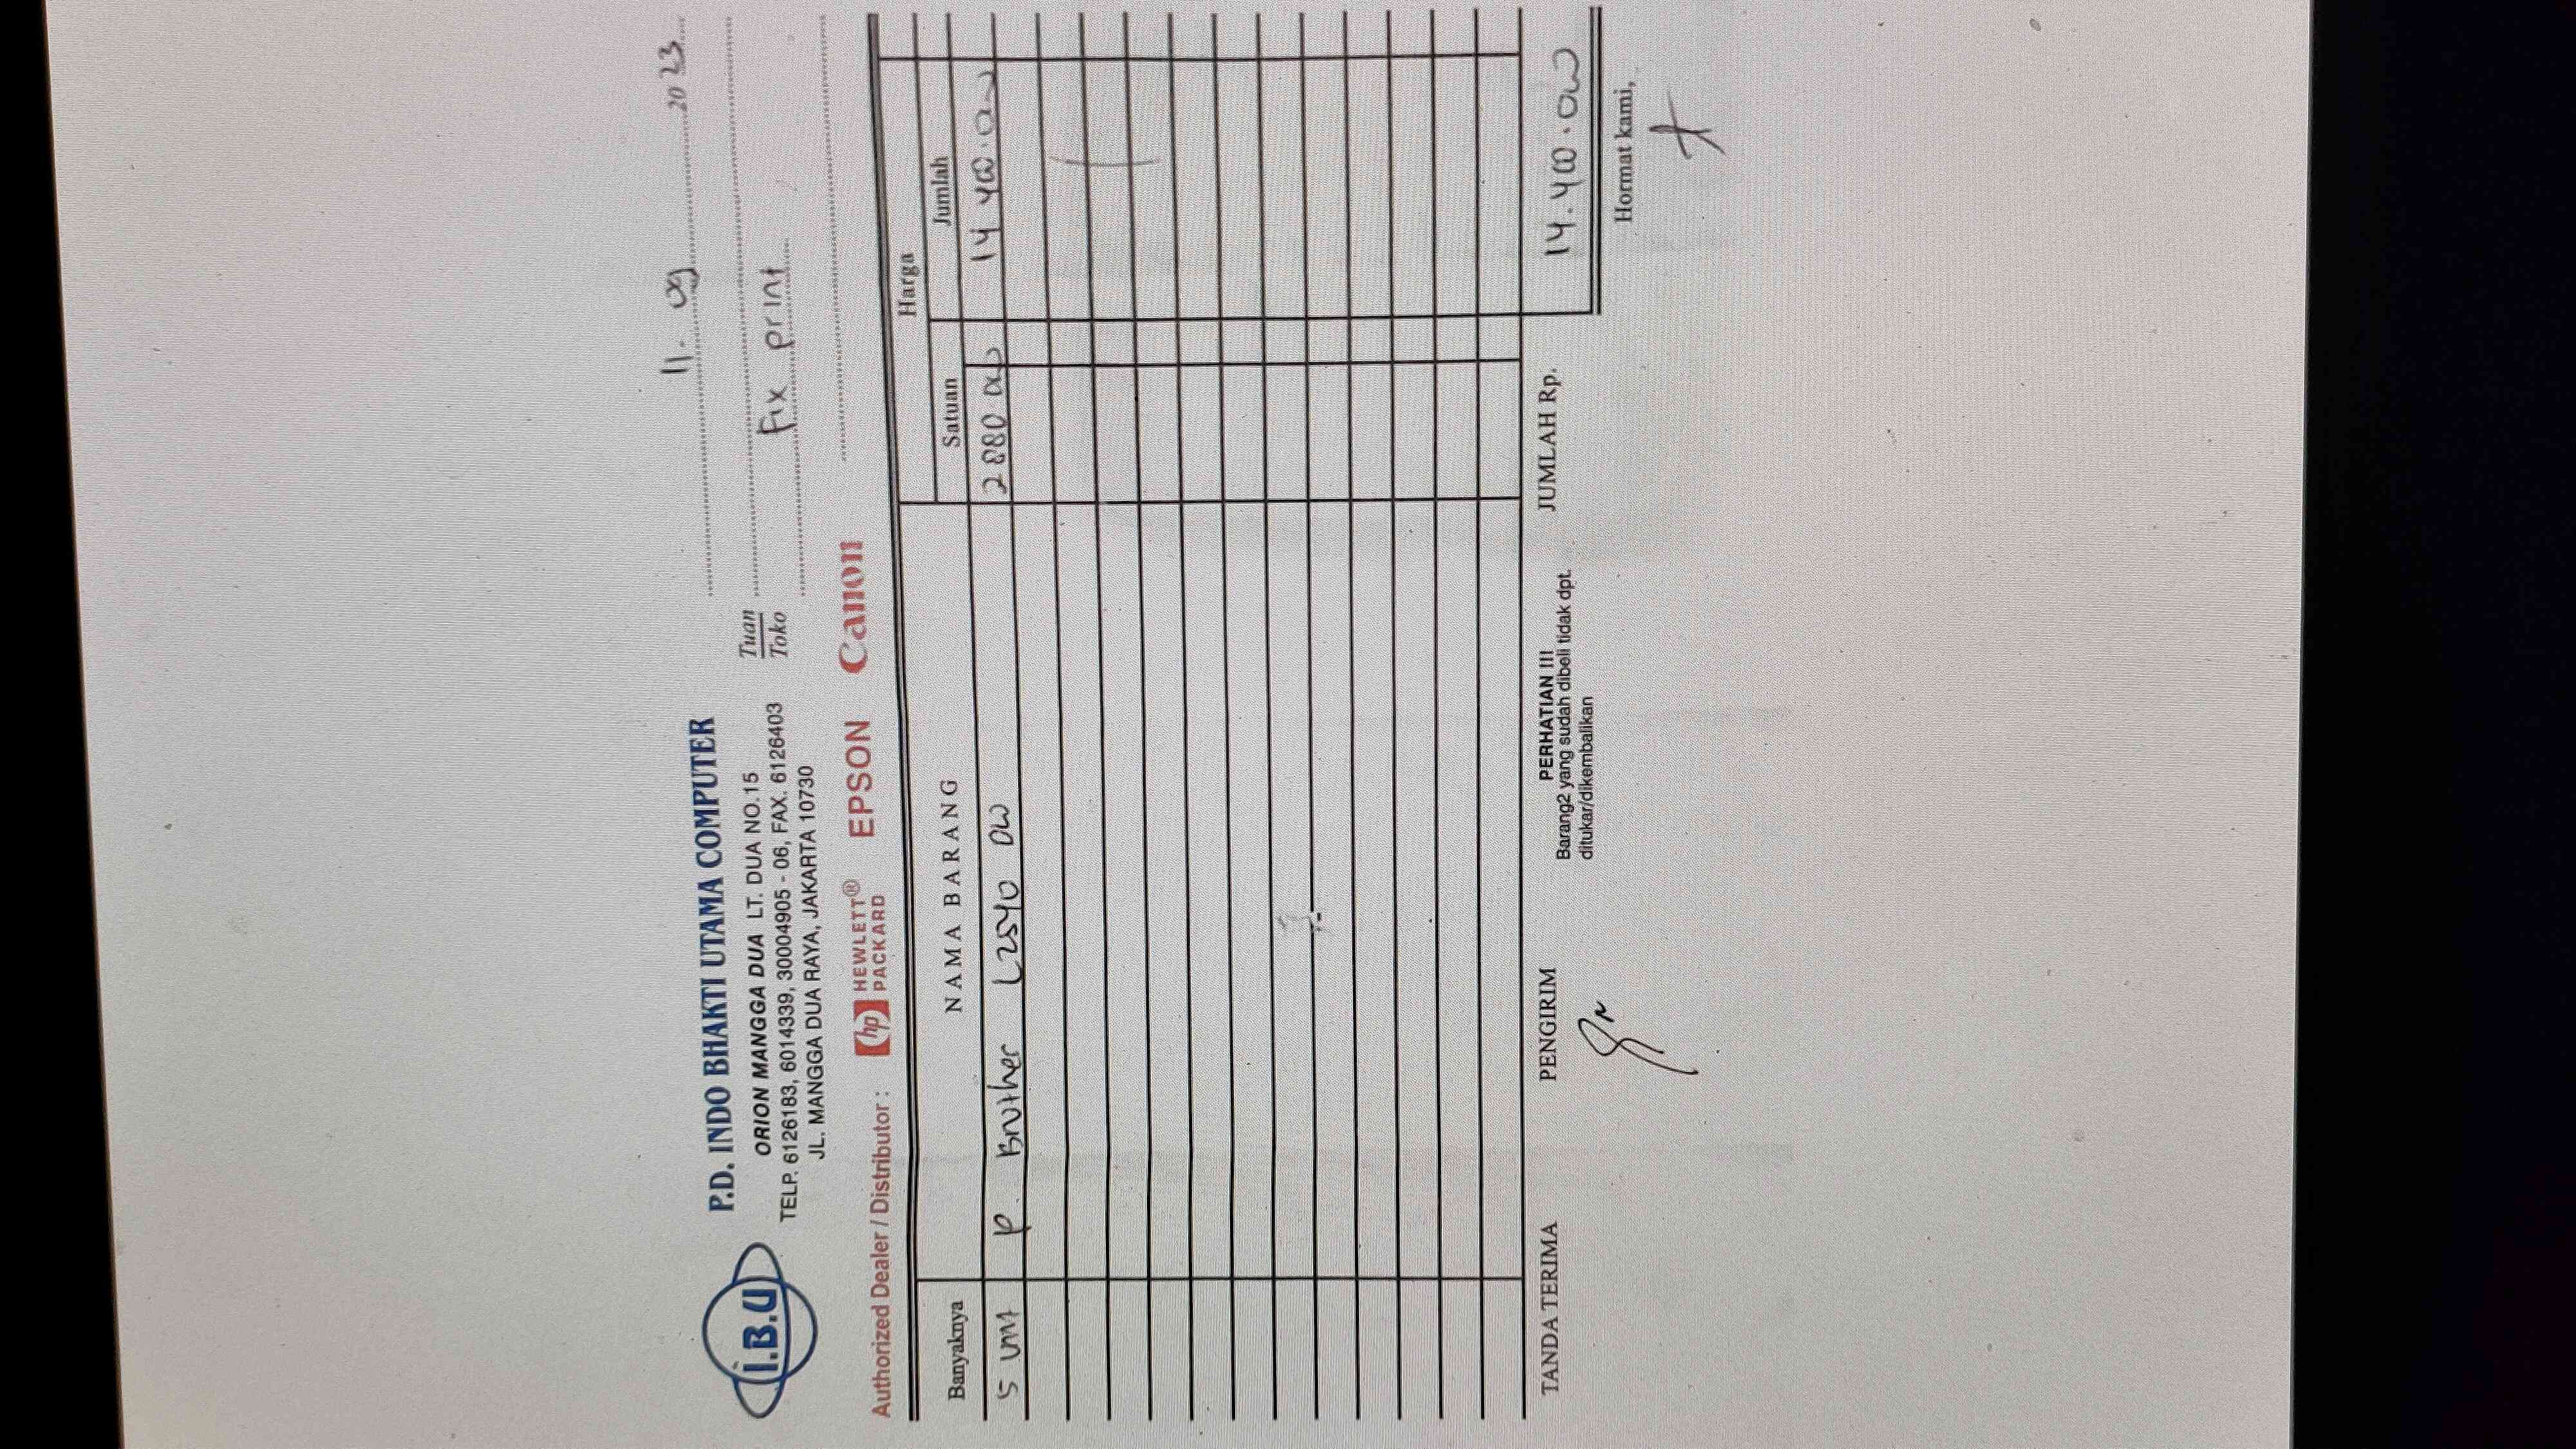 I.B.U
P.D. INDO BHAKTI UTAMA COMPUTER
ORION MANGGA DUA LT. DUA NO.15
TELP. 6126183, 6014339, 30004905 - 06, FAX. 6126403
JL. MANGGA DUA RAYA, JAKARTA 10730
11. 09 20 23
Tuan
Toko
Fix print
Authorized Dealer / Distributor : hp HEWLETT® PACKARD EPSON Canon
Banyaknya NAMA BARANG Harga
Satuan Jumlah
5 unit P. Brother L2540 DW 2880 000 14 400.000
TANDA TERIMA PENGIRIM PERHATIAN !!! JUMLAH Rp. 14.400.000
Barang2 yang sudah dibeli tidak dpt.
ditukar/dikembalikan
Hormat kami,